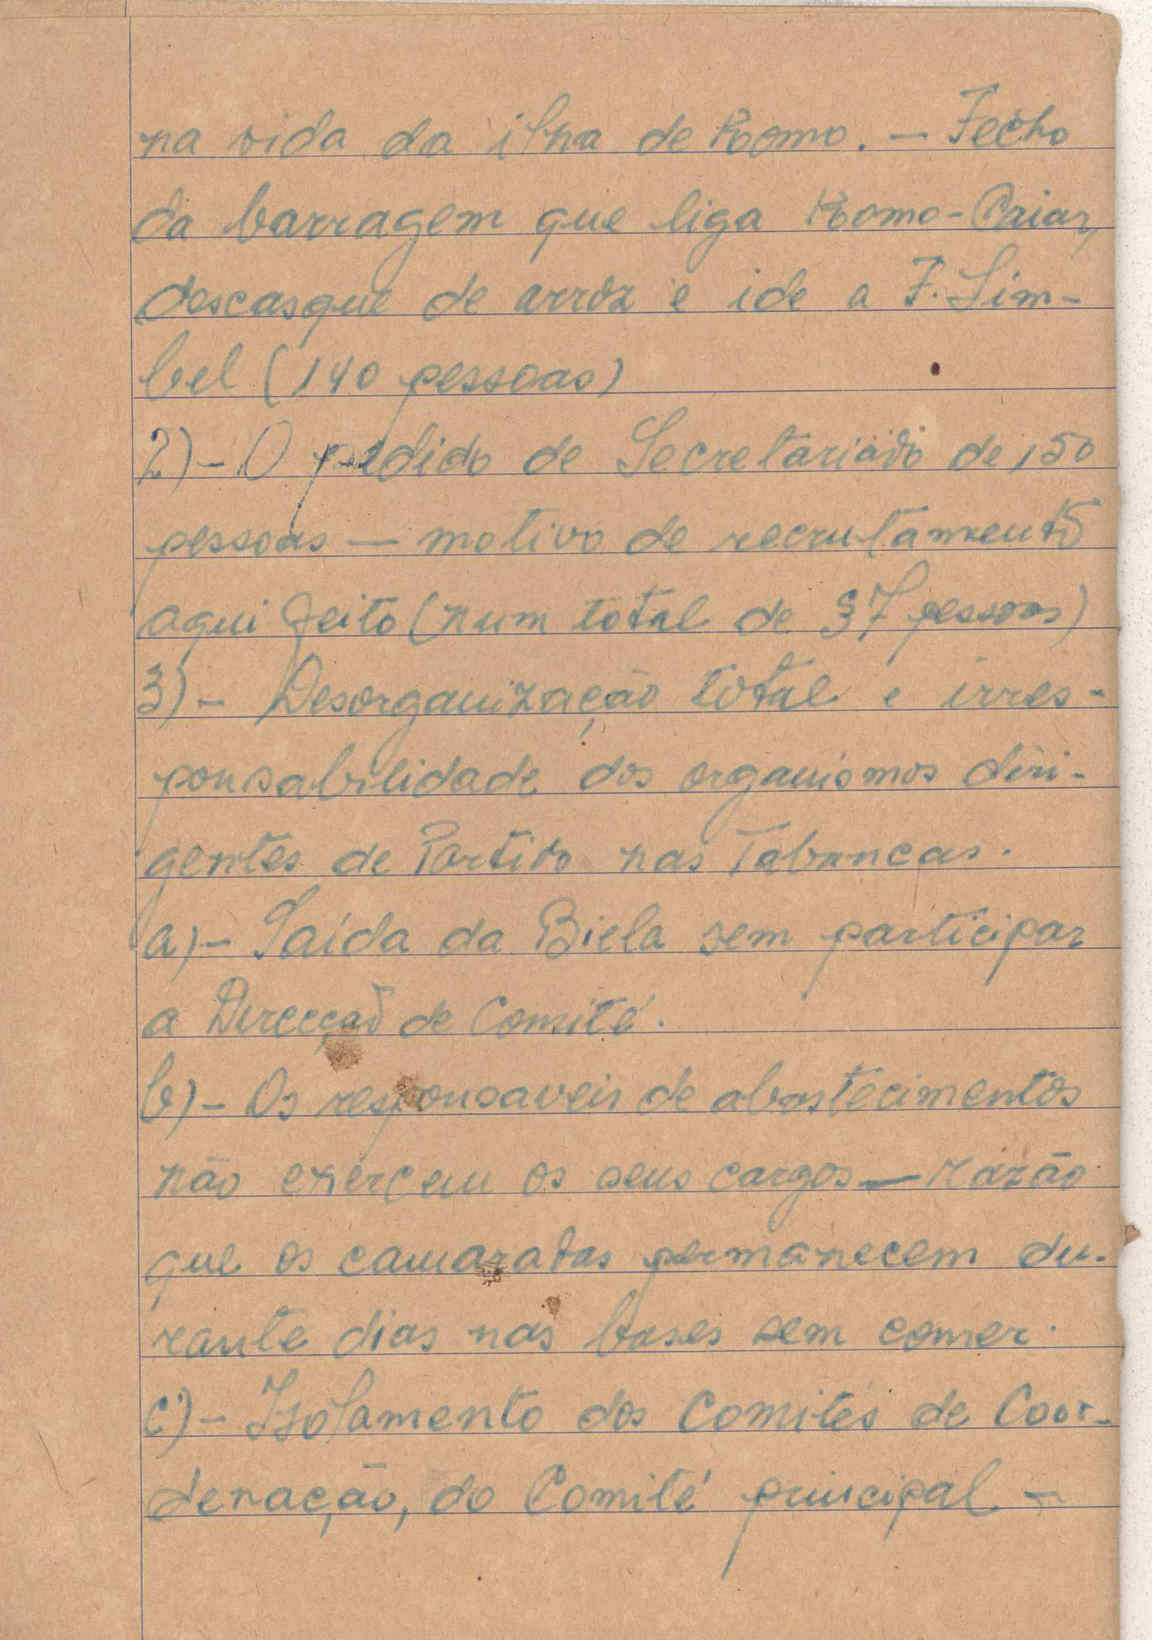 na vida da ilha de Komo. — Fecho
da barragem que liga Komo-Caiar,
descasque de arroz e ide a F. Sim-
bel (140 pessoas)
2)- O pedido de Secretariado de 150
pessoas — motivo de recrutamento
aqui feito (num total de 37 pessoas)
3)- Desorganização total e irres-
ponsabilidade dos organismos diri-
gentes de Partido nas Tabancas.
a)- Saída da Biela sem participar
a Direcção de Comité.
b)- Os responsaveis de abastecimentos
não exercem os seus cargos — razão
que os camaradas permanecem du-
rante dias nas bases sem comer.
c)- Isolamento dos Comités de Coor-
denação, do Comité principal —